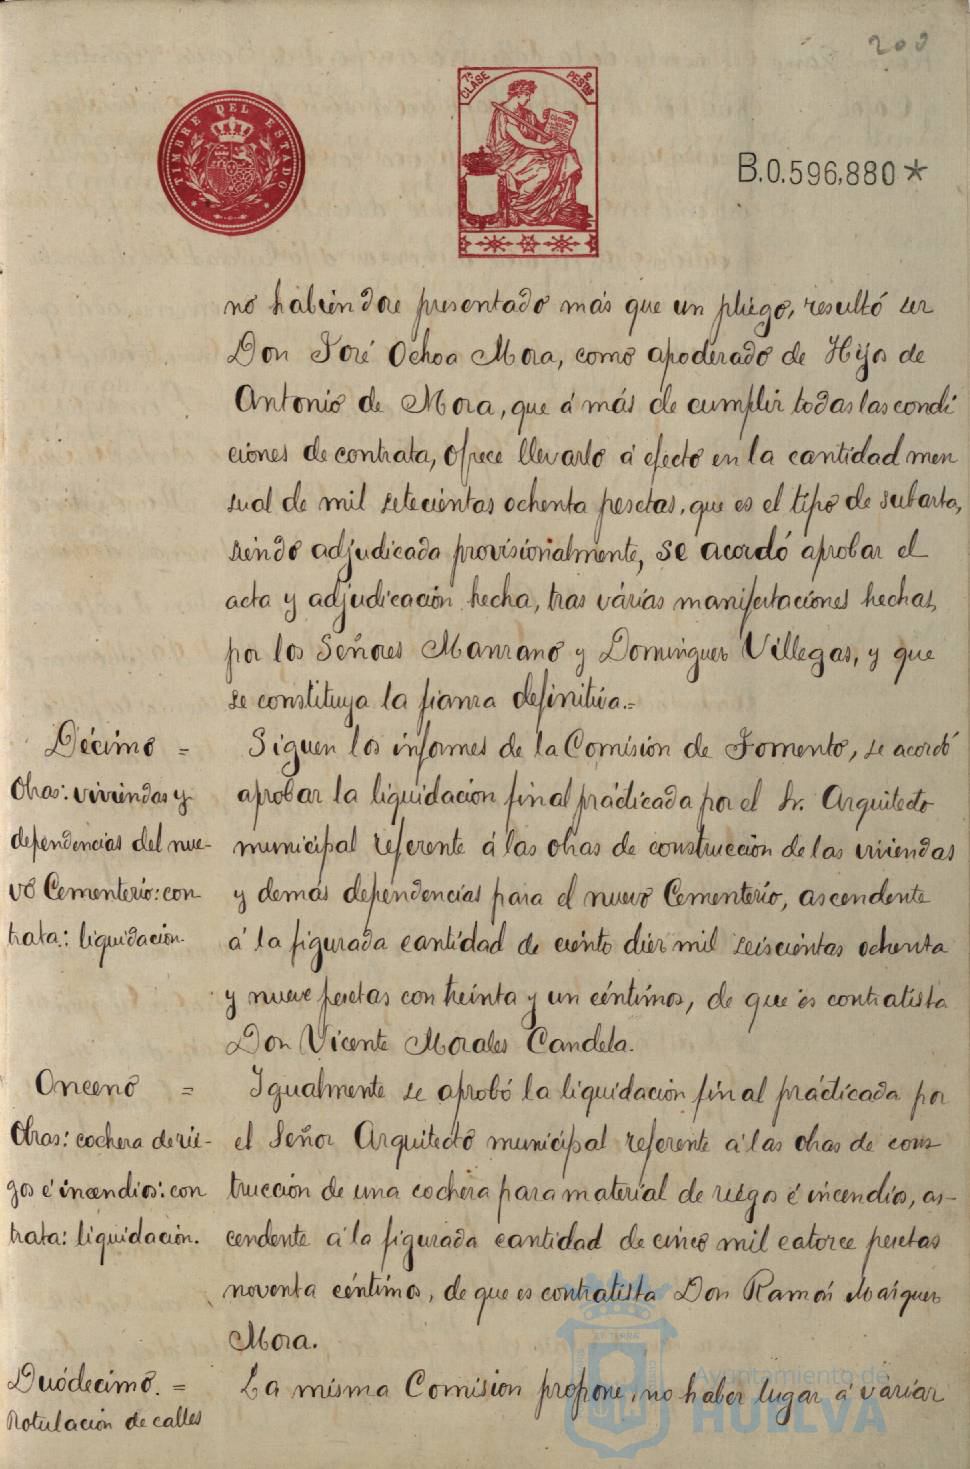 203
TIMBRE DEL ESTADO
7ª CLASE
2 PESETAS
B.0.596,880*
no habiéndose presentado más que un pliego, resultó ser
Don José Ochoa Mora, como apoderado de Hijos de
Antonio de Mora, que á más de cumplir todas las condi
ciones de contrata, ofrece llevarlo á efecto en la cantidad men
sual de mil setecientas ochenta pesetas, que es el tipo de subasta,
siendo adjudicada provisionalmente, se acordó aprobar el
acta y adjudicación hecha, tras várias manifestaciones hechas,
por los Señores Manzano y Dominguez Villegas, y que
se constituya la fianza definitiva.=
Décimo =
Obras: viviendas y
dependencias del nue-
vo Cementerio: con
trata: liquidación.
Siguen los informes de la Comisión de Fomento, se acordó
aprobar la liquidacion final prácticada por el Sr. Arquitecto
municipal referente á las obras de construccion de las viviendas
y demás dependencias para el nuevo Cementerio, ascendente
á la figurada cantidad de ciento diez mil seiscientas ochenta
y nueve pesetas con treinta y un céntimos, de que es contratista
Don Vicente Morales Candela.
Onceno =
Obras: cochera de rie-
gos é incendios: con
trata: liquidación.
Igualmente se aprobó la liquidación final prácticada por
el Señor Arquitecto municipal referente á las obras de cons
trucción de una cochera para material de riegos é incendios, as-
cendente á la figurada cantidad de cinco mil catorce pesetas
noventa céntimos, de que es contratista Don Ramón Márquez
Mora.
Duódecimo. =
Rotulación de calles
La misma Comision propone, no haber lugar á váriar
Ayuntamiento de
HUELVA